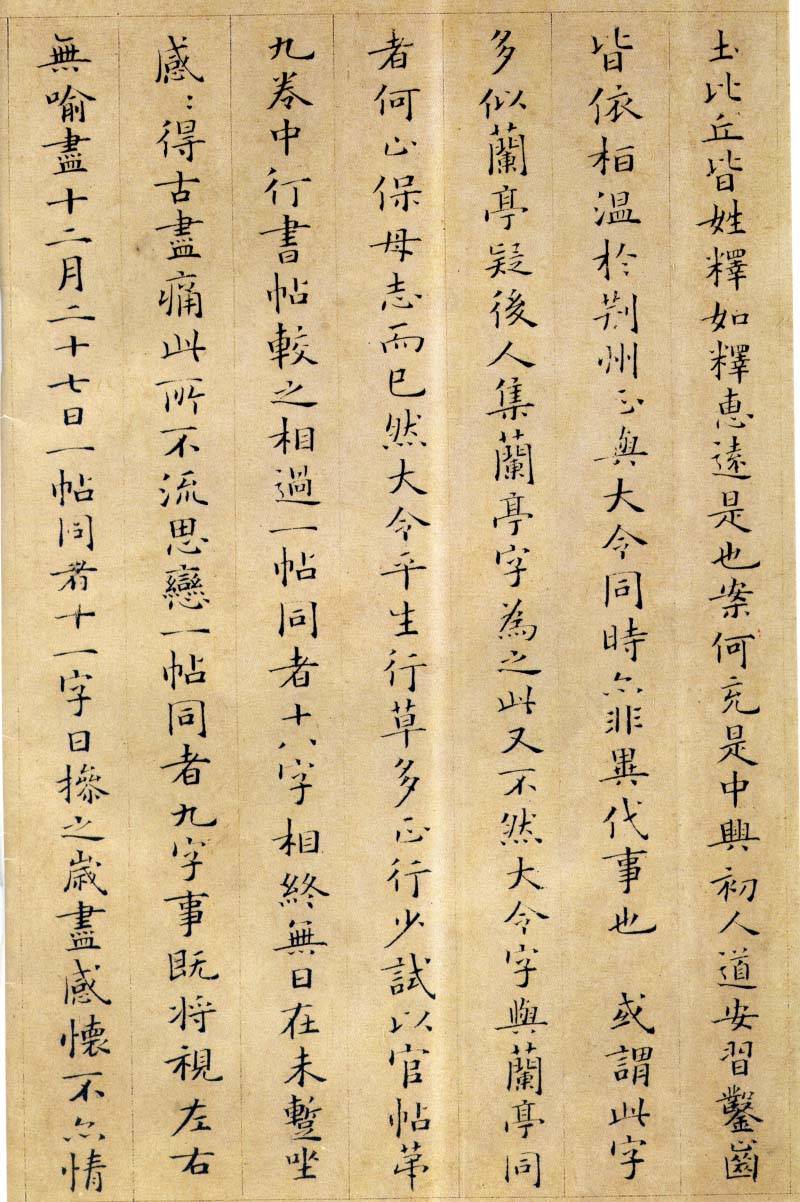 土比丘皆姓釋如釋惠遠是也案何充是中興初人道安習鑿齒
皆依桓温於荆州正與大令同時亦非異代事也 或謂此字
多似蘭亭疑後人集蘭亭字為之此又不然大令字與蘭亭同
者何止保母志而已然大令平生行草多正行少試以官帖第
九卷中行書帖較之相過一帖同者十八字相終無日在未蹔坐
感〻得古盡痛此所不流思戀一帖同者九字事既将視左右
無喻盡十二月二十七日一帖同者十一字日㨿之歳盡感懐不亦情